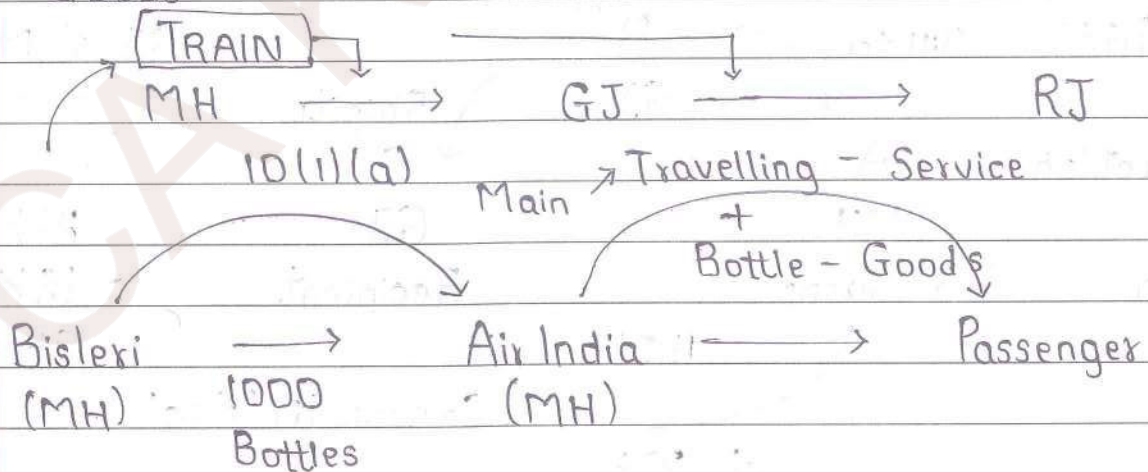 TRAIN
MH → GJ. → RJ
10(1)(a)
Main → Travelling - Service
+
Bottle - Goods
Bisleri → Air India → Passenger
(MH) 1000 (MH)
Bottles